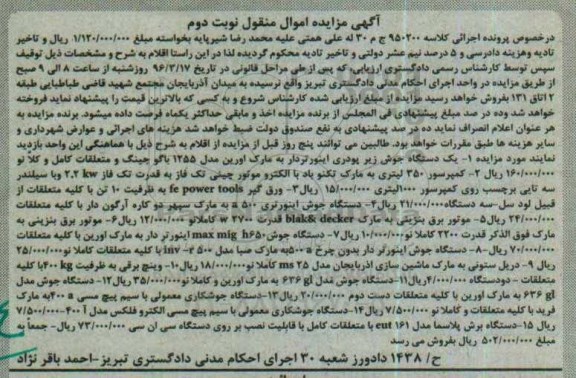 آگهی مزایده اموال منقول نوبت دوم
درخصوص پرونده اجرائی کلاسه ۹۵۰۲۰۰ ج م ۳۰ له علی همتی علیه محمد رضا شیرپایه بخواسته مبلغ ۱/۱۲۰/۰۰۰/۰۰۰ ریال و تاخیر
تادیه وهزینه دادرسی و ۵ درصد نیم عشر دولتی و تاخیر تادیه محکوم گردیده لذا در این راستا اقلام به شرح و مشخصات ذیل توقیف
سپس توسط کارشناس رسمی دادگستری ارزیابی، که پس از طی مراحل قانونی در تاریخ ۹۶/۳/۱۷ روزشنبه از ساعت ۸ الی ۹ صبح
از طریق مزایده در واحد اجرای احکام مدنی دادگستری تبریز واقع نرسیده به میدان آذربایجان مجتمع شهید قاضی طباطبایی طبقه
۲ اتاق ۱۳۱ بفروش خواهد رسید مزایده از مبلغ ارزیابی شده کارشناس شروع و به کسی که بالاترین قیمت را پیشنهاد نماید فروخته
خواهد شد وده در صد مبلغ پیشنهادی فی المجلس از برنده مزایده اخذ و مابقی حداکثر یکماه فرصت داده میشود. برنده مزایده به
هر عنوان اعلام انصراف نماید ده در صد پیشنهادی به نفع صندوق دولت ضبط خواهد شد هزینه های اجرائی و عوارض شهرداری و
سایر هزینه ها طبق مقررات خواهد بود. طالبین می توانند پنج روز قبل از مزایده از اقلام به شرح ذیل با هماهنگی این واحد بازدید
نمایند مورد مزایده ۱- یک دستگاه جوش زیر پودری اینورتردار به مارک اورین مدل ۱۲۵۵ باگو جینگ و متعلقات کامل و کلا نو
۱۶۰/۰۰۰/۰۰۰ ریال ۲- کمپرسور ۳۵۰ لیتری به مارک تکنو باد با الکترو موتور چینی تک فاز به قدرت تک فاز ۲.۲ kw وبا سیلندر
سه تایی برچسب روی کمپرسور ۱۰۰۰لیتری ۱۵/۰۰۰/۰۰۰ ریال۳- ورق گیر fe power tools به ظرفیت ۱۰ تن با کلیه متعلقات از
قبیل لود سل-سه دستگاه۲۱/۰۰۰/۰۰۰ریال۴- دستگاه جوش اینورتری ۵۰۰ a به مارک سپهر دو کاره آرگون دار با کلیه متعلقات
۲۴/۰۰۰/۰۰۰ریال۵- موتور برق بنزینی به مارک blak& decker قدرت ۲۷۰۰ w کاملانو ۱۲/۰۰۰/۰۰۰ ریال۶- موتور برق بنزینی به
مارک فوق الذکر قدرت ۲۲۰۰ کاملا نو۱۰/۰۰۰/۰۰۰ ریال۷- دستگاه جوش max mig_h۶۵۰ اینورتر دار به مارک اورین با کلیه متعلقات
۷۰/۰۰۰/۰۰۰ ریال-۸- دستگاه جوش اینورتر دار بدون چرخ ۵۰۰aبه مارک صبا مدل ۵۰۰ inv-r با کلیه متعلقات کاملا نو۲۵/۰۰۰/۰۰۰
ریال ۹- دریل ستونی به مارک ماشین سازی اذربایجان مدل ۲۵ ms کاملا نو۱۸/۰۰۰/۰۰۰ریال۱۰- وینچ برقی به ظرفیت ۴۰۰ kgبا کلیه
متعلقات - دودستگاه ۴/۰۰۰/۰۰۰ریال۱۱- دستگاه جوش مدل ۶۳۶ gl به مارک اورین و کاملا نو۳۵/۰۰۰/۰۰۰ریال۱۲- دستگاه جوش مدل
۶۳۶ gl به مارک اورین با کلیه متعلقات دست دوم ۲۰/۰۰۰/۰۰۰ ریال۱۳-دستگاه جوشکاری معمولی با سیم پیچ مسی ۴۰۰aبه مارک
فرید با کلیه متعلقات و کاملا نو ۷/۵۰۰/۰۰۰ریال۱۴-دستگاه جوشکاری معمولی با سیم پیچ مسی الکترو فلکس مدل ۴۰۰ آ-۷/۵۰۰/۰۰۰
ریال ۱۵-دستگاه برش پلاسما مدل ۱۶۱ cut با متعلقات کامل با قابلیت نصب بر روی دستگاه سی ان سی ۷۳/۰۰۰/۰۰۰ ریال- جمعا به
مبلغ ۵۰۲/۰۰۰/۰۰۰ ریال بفروش می رسد
ح/ ۱۴۳۸ دادورز شعبه ۳۰ اجرای احکام مدنی دادگستری تبریز-احمد باقر نژاد